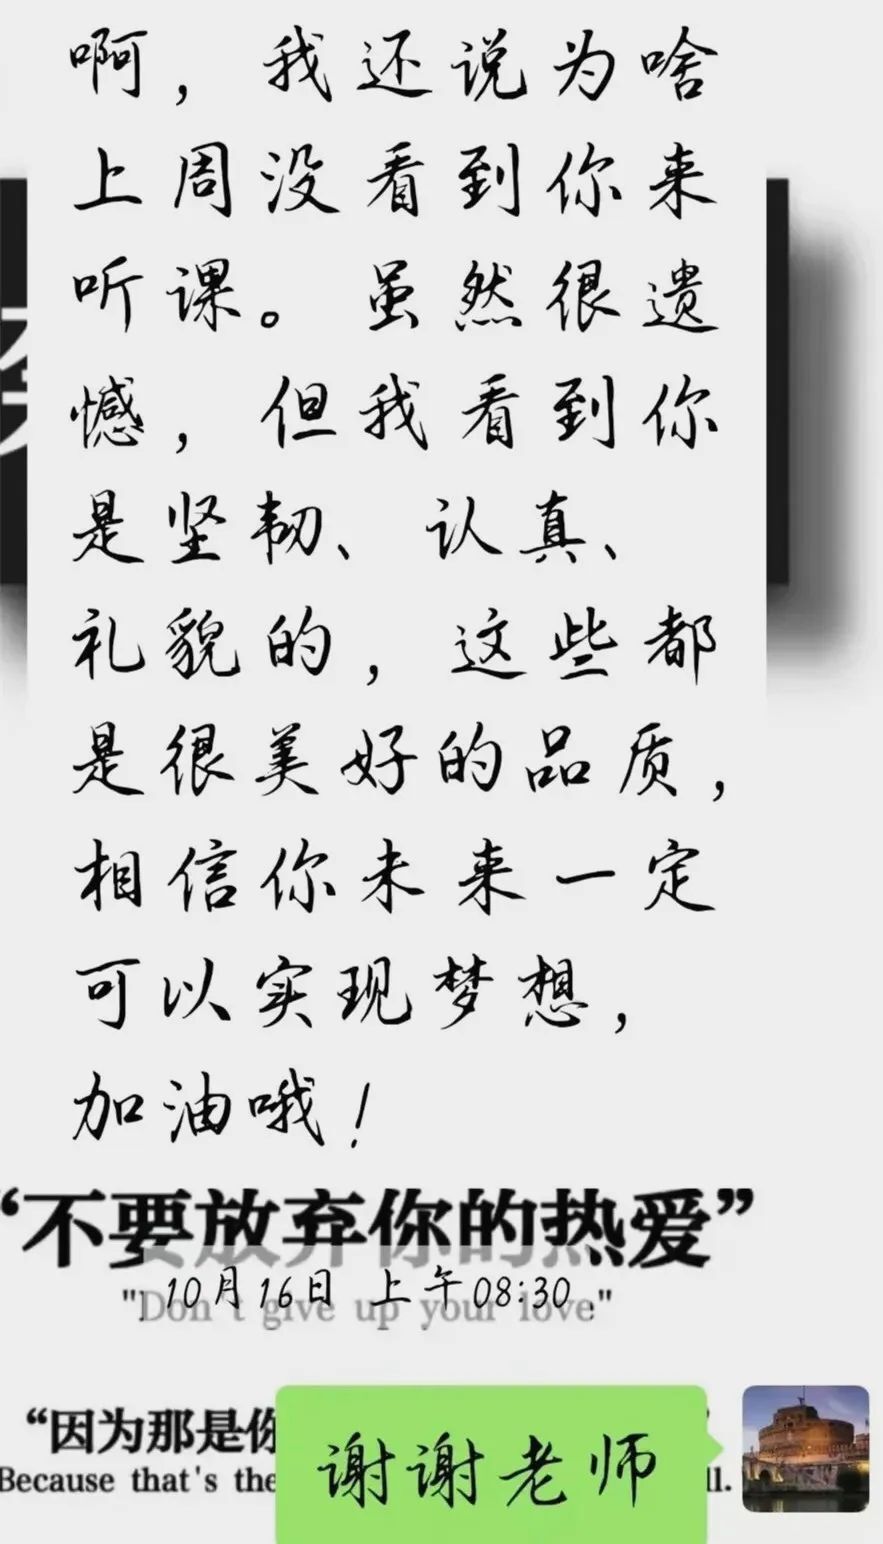 啊，我还说为啥
上周没看到你来
听课。虽然很遗
憾，但我看到你
是坚韧、认真、
礼貌的，这些都
是很美好的品质，
相信你未来一定
可以实现梦想，
加油哦！
“不要放弃你的热爱”
10月16日 上午08:30
"Don't give up your love."
“因为那是你
谢谢老师
Because that's the
ll.